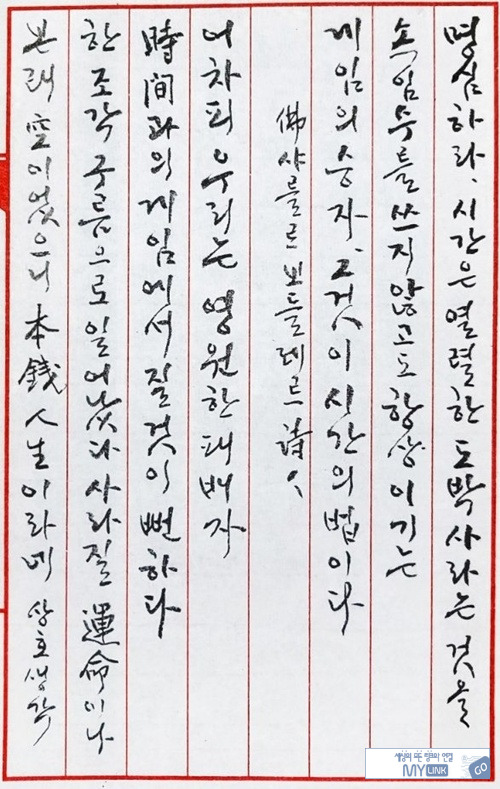 명심하라. 시간은 열렬한 도박사라는 것을
속임수를 쓰지 않고도 항상 이기는
게임의 승자. 그것이 시간의 법이다
佛 샤를르 보들레르 詩人
어차피 우리는 영원한 패배자
時間과의 게임에서 질 것이 뻔하다
한 조각 구름으로 일어났다 사라질 運命이나
본래 空이었으니 本錢人生이라네 상호생각
세상의 모든 정보의 연결
MYLINK GO